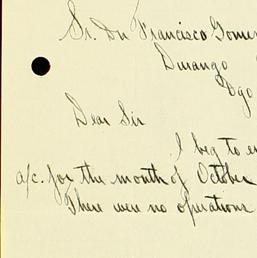 Sr. Dn Francisco Gomez
Durango
Dgo
Dear Sir
I beg to en
a/c. for the month of October
There were no operations